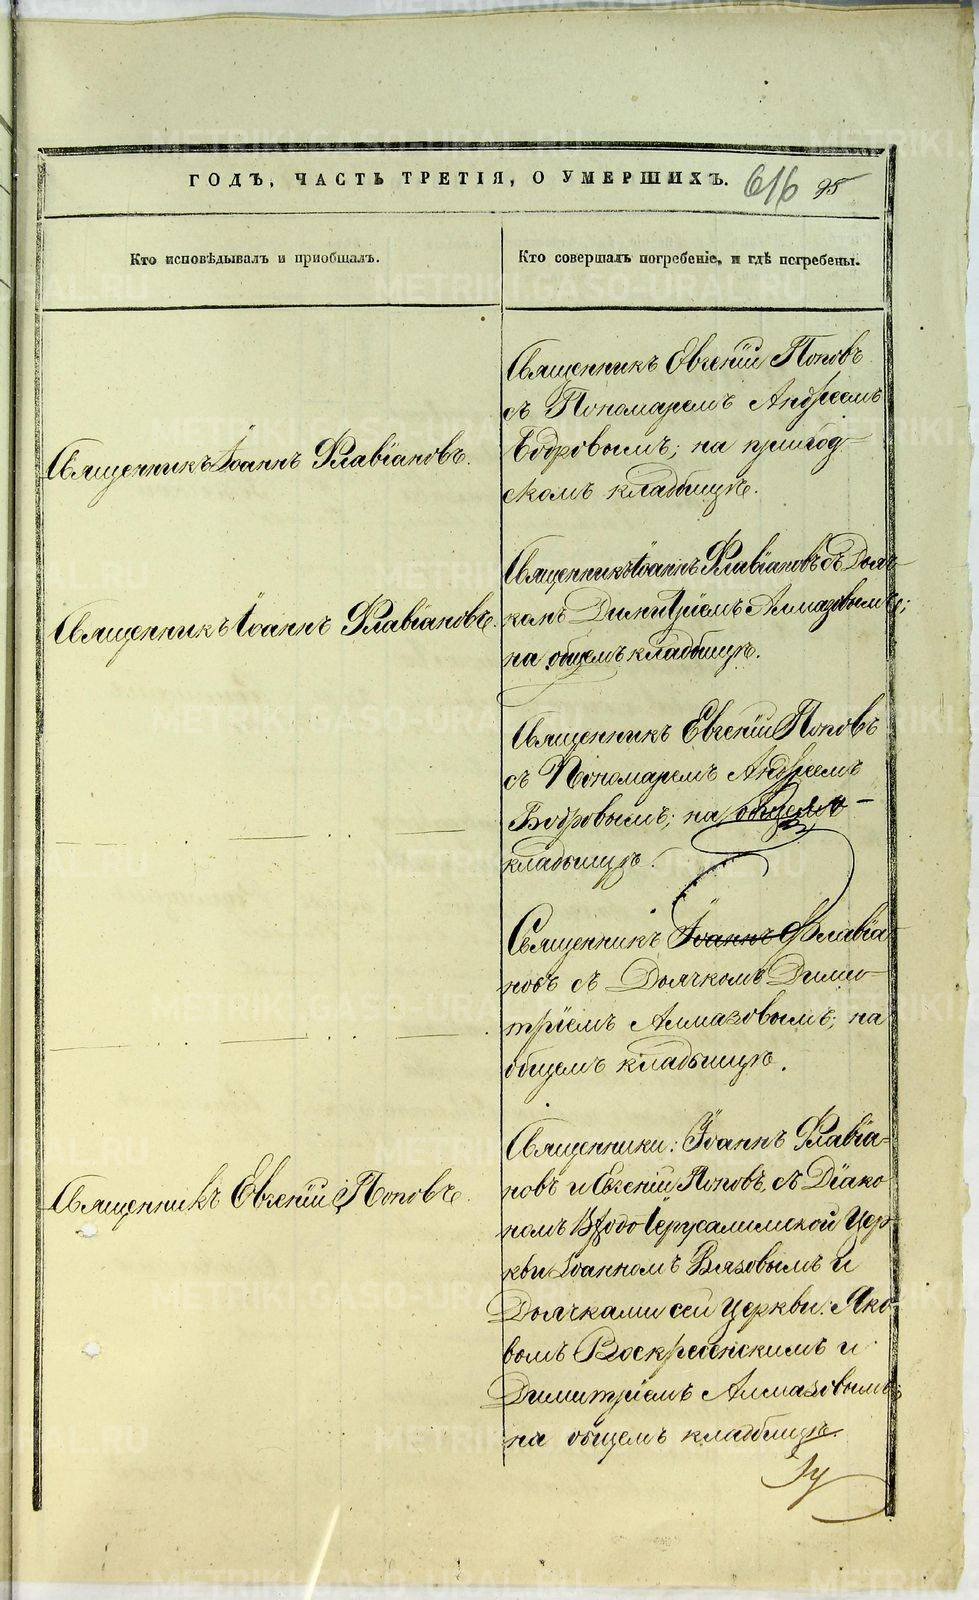 ГОДЪ, ЧАСТЬ ТРЕТІЯ, О УМЕРШИХЪ. 616 95
Кто исповѣдывалъ и пріобщалъ.
Кто совершалъ погребеніе, и гдѣ погребены.
Священникъ Іоаннъ Флавіановъ.
Священникъ Евгеній Поповъ
съ Пономаремъ Андреемъ
Бобровымъ; на приход-
скомъ кладбищѣ.
Священникъ Іоаннъ Флавіановъ.
Священникъ Іоаннъ Флавіановъ съ Дьяч-
комъ Димитріемъ Алмазовымъ;
на общемъ кладбищѣ.
Священникъ Евгеній Поповъ
съ Пономаремъ Андреемъ
Бобровымъ; на общемъ
кладбищѣ.
Священникъ Іоаннъ Флавіа-
новъ съ Дьячкомъ Дими-
тріемъ Алмазовымъ; на
общемъ кладбищѣ.
Священникъ Евгеній Поповъ.
Священники: Іоаннъ Флавіа-
новъ и Евгеній Поповъ, съ Діако-
номъ Входо Іерусалимской Цер-
кви Іоанномъ Вязовымъ и
Дьячками сей Церкви: Яко-
вомъ Воскресенскимъ и
Димитріемъ Алмазовымъ;
на общемъ кладбищѣ.
METRIKI.GASO-URAL.RU